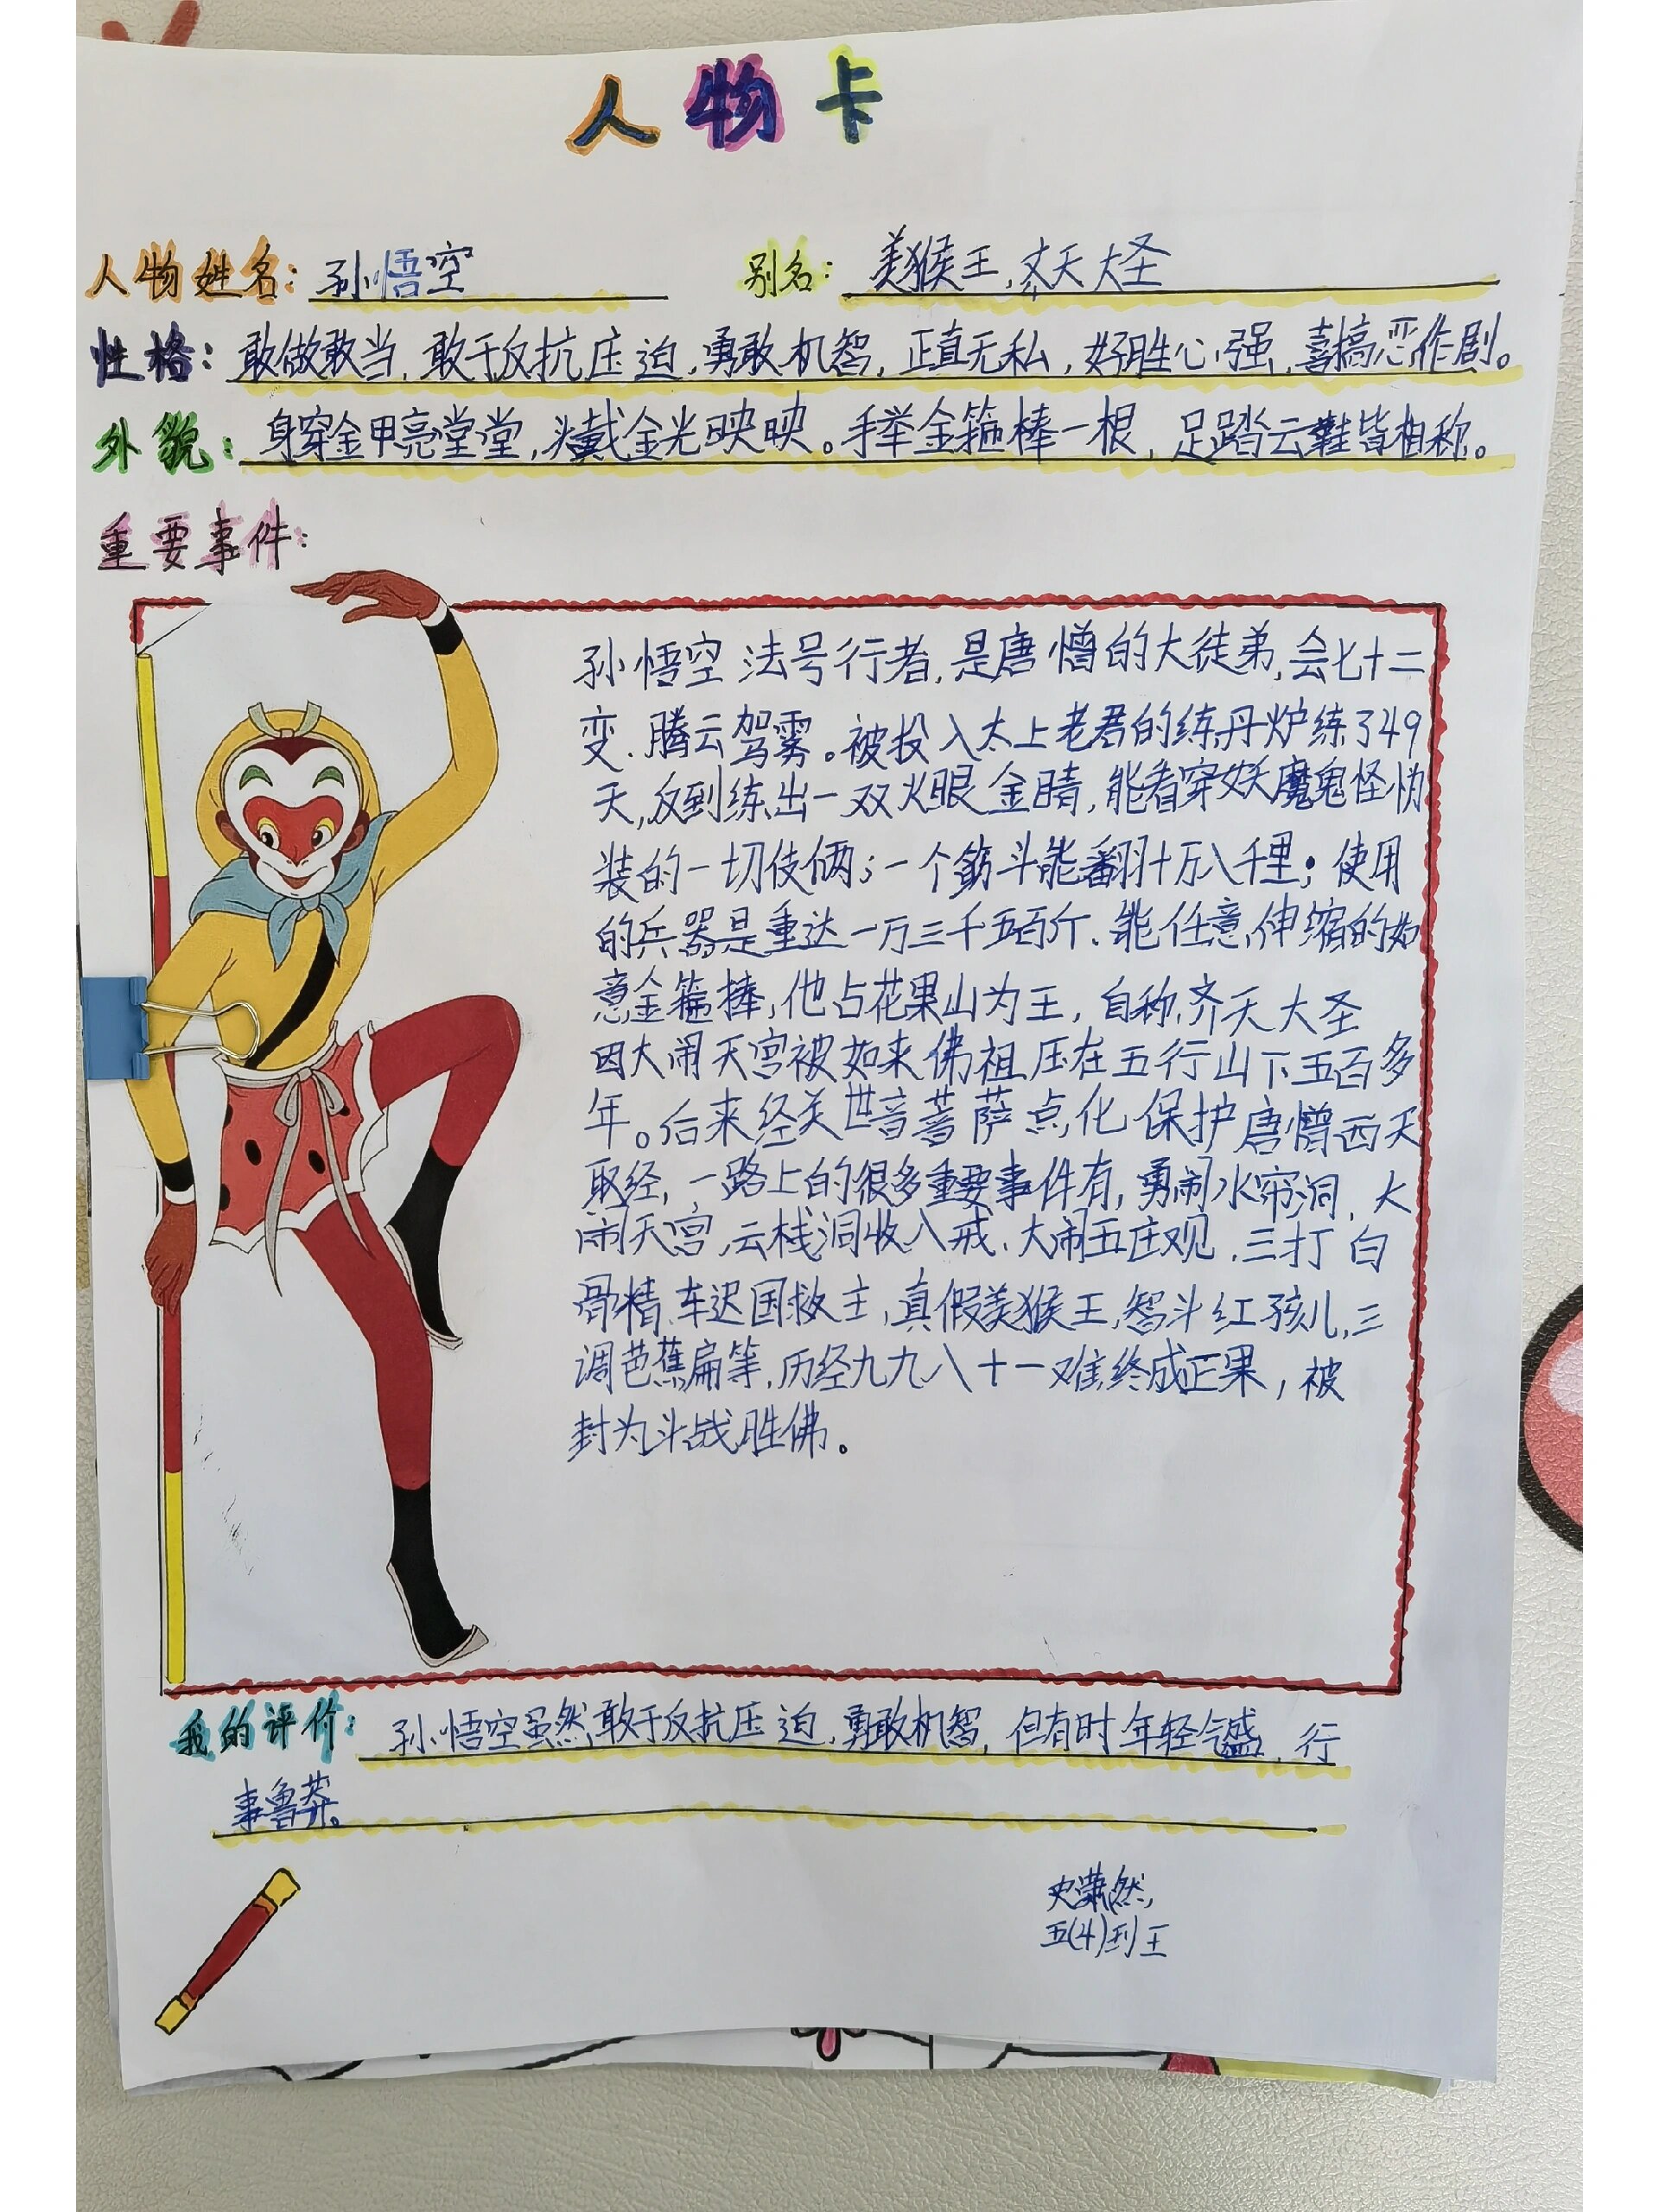 人物卡
人物姓名：孙悟空 别名：美猴王,齐天大圣
性格：敢做敢当,敢于反抗压迫,勇敢机智,正直无私,好胜心强,喜搞恶作剧。
外貌：身穿金甲亮堂堂,头戴金光映映。手举金箍棒一根,足踏云鞋皆相称。
重要事件：
孙悟空法号行者,是唐憎的大徒弟,会七十二
变、腾云驾雾。被投入太上老君的练丹炉练了49
天,反到练出一双火眼金睛,能看穿妖魔鬼怪伪
装的一切伎俩;一个筋斗能翻十万八千里;使用
的兵器是重达一万三千五百斤、能任意伸缩的如
意金箍棒,他占花果山为王,自称齐天大圣
因大闹天宫被如来佛祖压在五行山下五百多
年。后来经关世音菩萨点化保护唐憎西天
取经,一路上的很多重要事件有,勇闹水帘洞、大
闹天宫、云栈洞收八戒、大闹五庄观、三打白
骨精、车迟国救主,真假美猴王,智斗红孩儿,三
调芭蕉扁等,历经九九八十一难终成正果,被
封为斗战胜佛。
我的评价：孙悟空虽然敢于反抗压迫,勇敢机智,但有时年轻气盛,行
事鲁莽。
史潇然
五(4)班